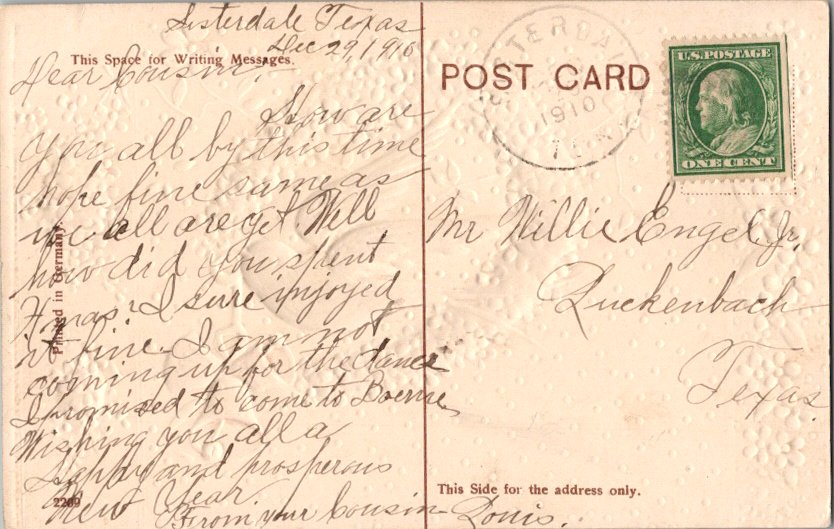 Sisterdale Texas
Dec 29, 1910
This Space for Writing Messages.
Dear Cousin,
How are
you all by this time
hope fine same as
we all are yet. Well
how did you spent
Xmas. I sure injoyed
it fine. I am not
comming up for the dance
I promised to come to Boerne,
Wishing you all a
Happy and prosperous
New Year.
From your Cousin
Louis.
Printed in Germany.
2269
POST CARD
SISTERDALE
1910
TEX
U.S. POSTAGE
ONE CENT
Mr Willie Engel Jr,
Luckenbach
Texas.
This Side for the address only.